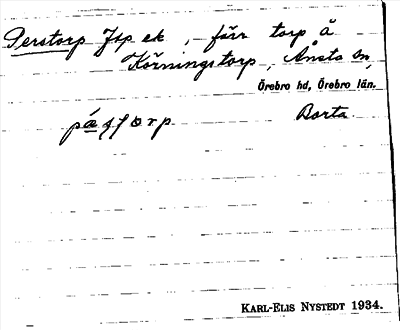 Perstorp Jtp ek , förr torp å
Körningstorp, Ånsta sn,
Örebro hd, Örebro län.
Borta.
KARL-ELIS NYSTEDT 1934.